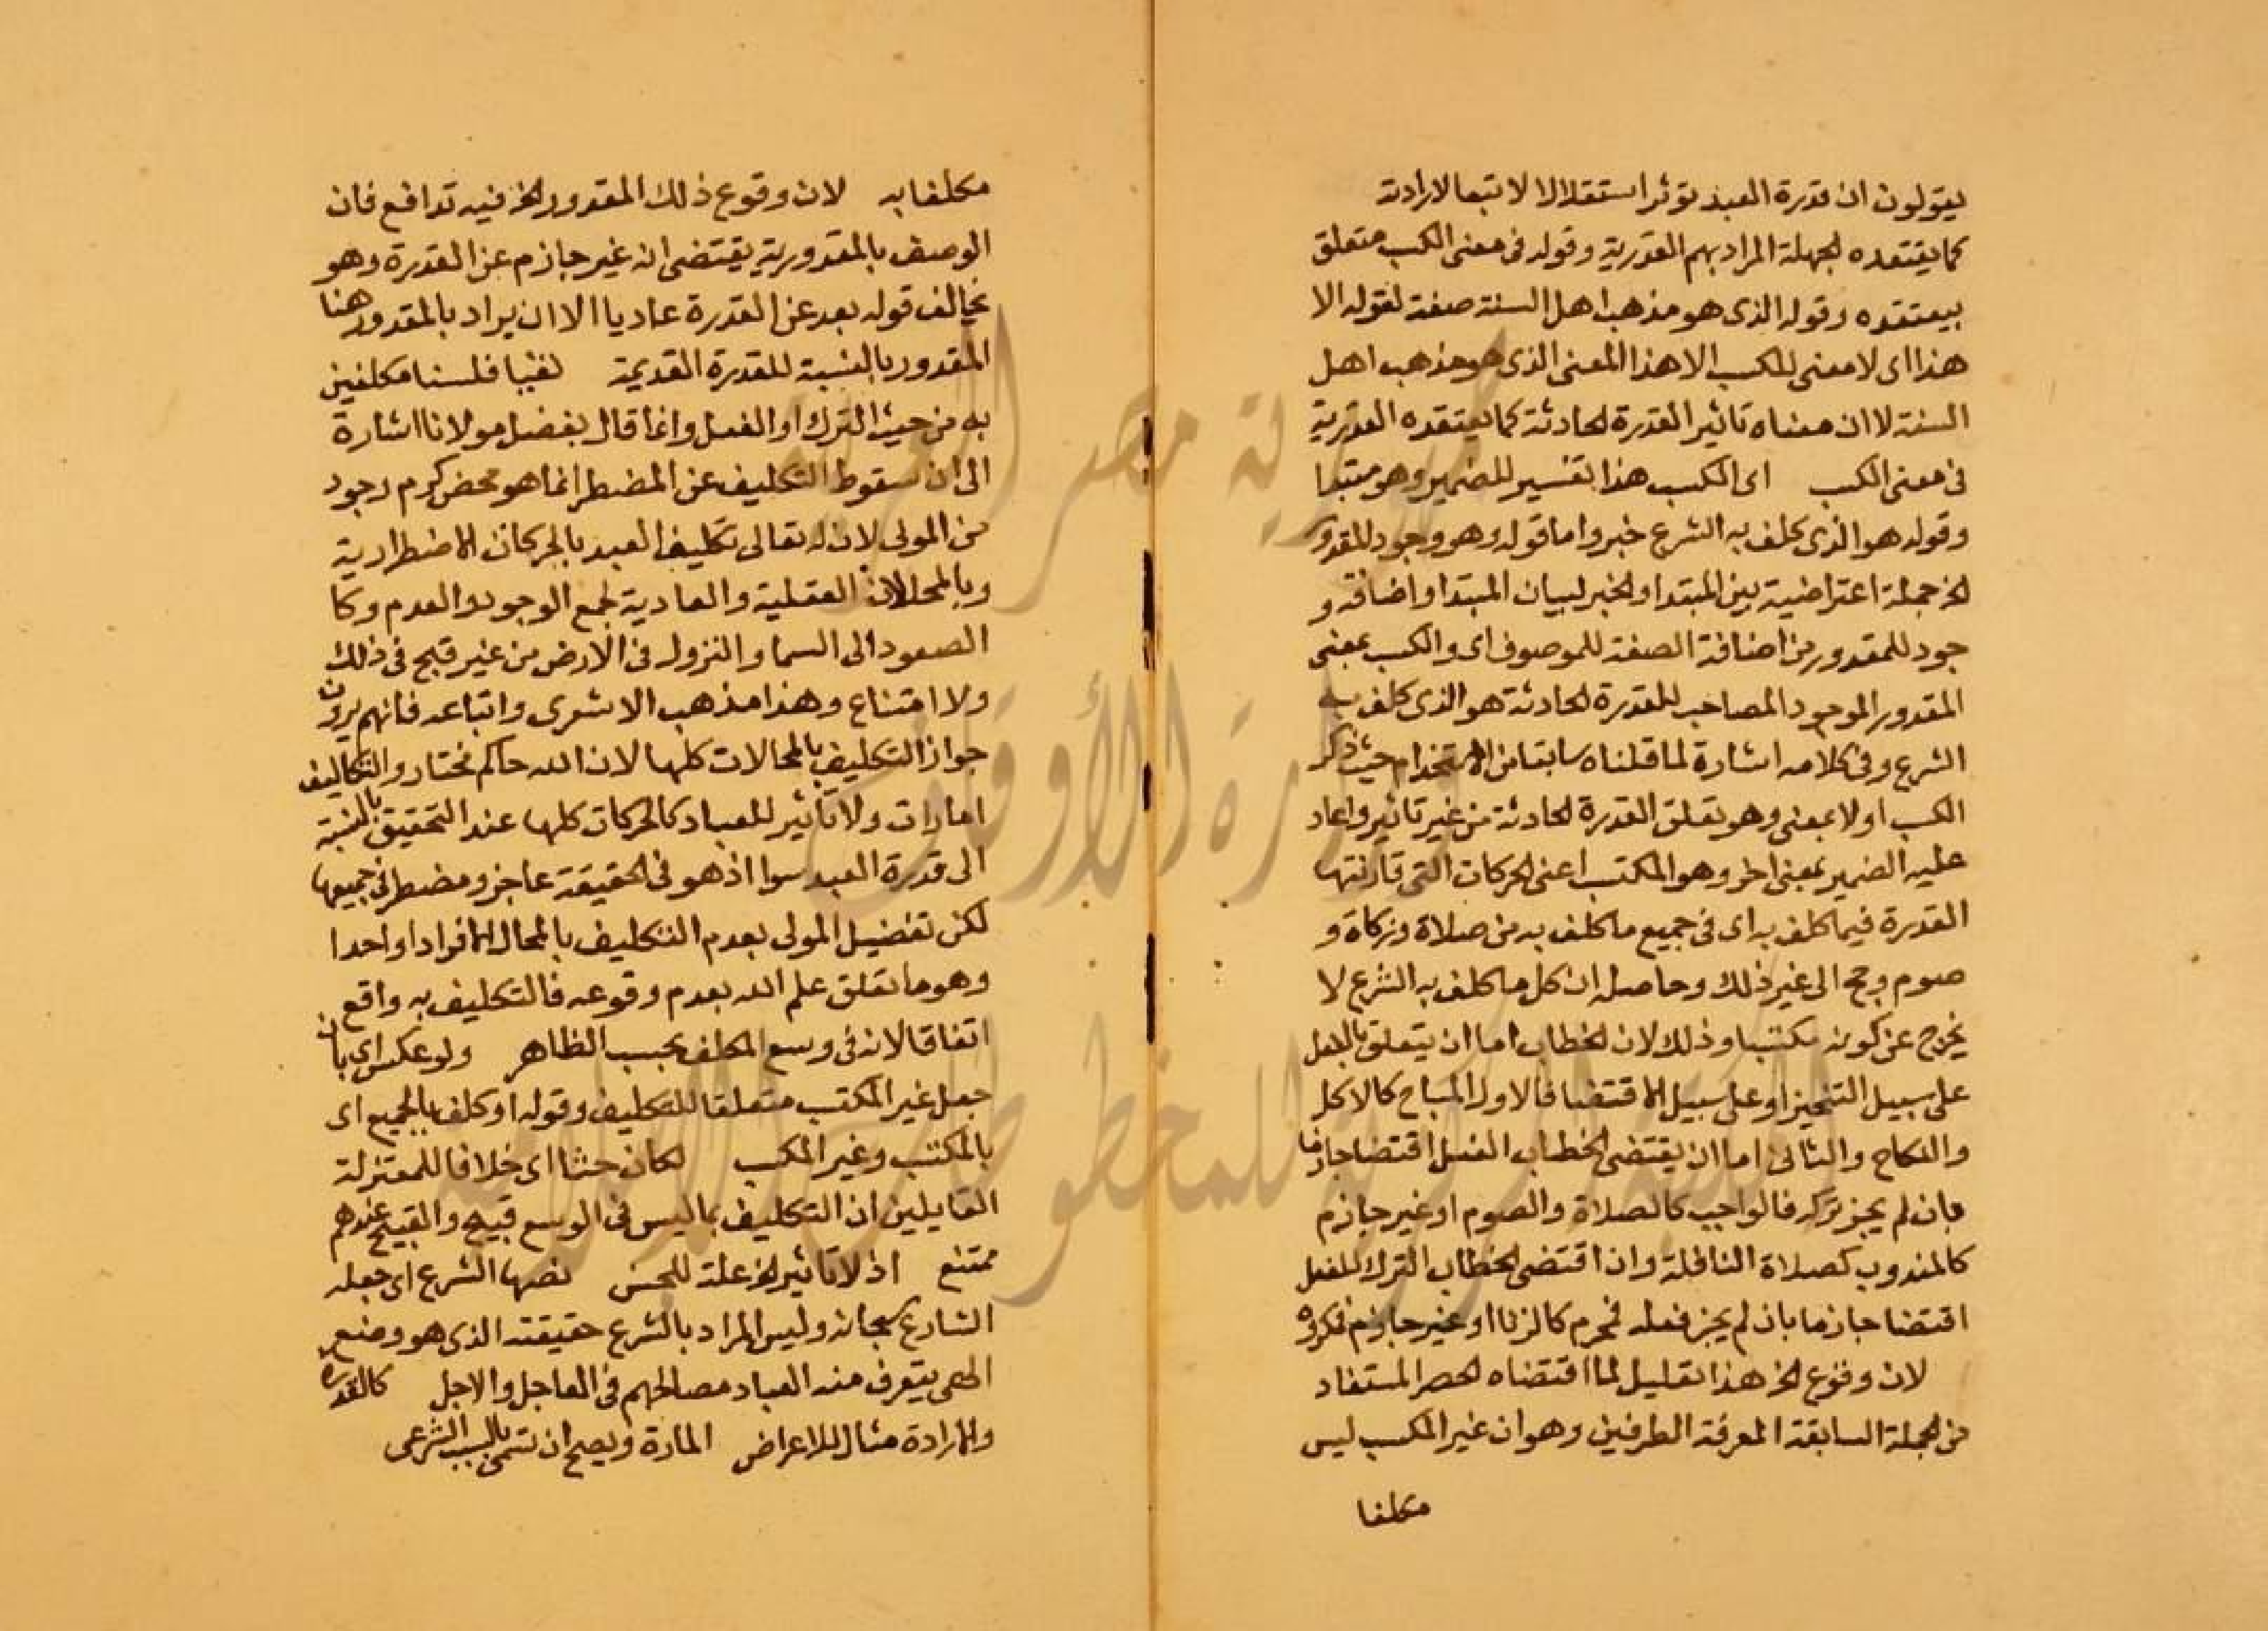 يقولون ان قدرة العبد توثر استقلالا لا تبعا لارادته
كما يعتقده الجهلة المراد بهم القدرية وقوله في معنى الكسب متعلق
بيعتقده وقوله الذي هو مذهب اهل السنة صفة لقوله الا
هذا اى لا معنى للكسب الا هذا المعنى الذى هو مذهب اهل
السنة لا ان معناه تاثير القدرة الحادثة كما يعتقده القدرية
فى معنى الكسب اى الكسب هذا تفسير للضمير وهو مبتدا
وقوله هو الذى كلف به الشرع خبر واما قوله وهو وجود المقدور
الخ جملة اعتراضية بين المبتدا والخبر لبيان المبتدا واضافة و
جود للمقدور من اضافة الصفة للموصوف اى والكسب بمعنى
المقدور الموجود المصاحب للقدرة الحادثة هو الذى كلف به
الشرع وفى كلامه اشارة لما قلناه سابقا من الاستخدام حيث ذكر
الكسب اولا بمعنى وهو تعلق القدرة الحادثة من غير تاثير واعاد
عليه الضمير بمعنى اخر وهو المكتسب اعنى الحركات التى قارنتها
القدرة فيما كلف به اى فى جميع ما كلف به من صلاة وزكاة و
صوم وحج الى غير ذلك وحاصله ان كل ما كلف به الشرع لا
يخرج عن كونه مكتسبا وذلك لان الخطاب اما ان يتعلق بالفعل
على سبيل التخيير او على سبيل الاقتضا فالاول المباح كالاكل
والنكاح والثانى اما ان يقتضى الخطاب الفعل اقتضا جازما
فان لم يجز تركه فالواجب كالصلاة والصوم او غير جازم
كالمندوب كصلاة النافلة وان اقتضى الخطاب الترك للفعل
اقتضا جازما بان لم يجز فعله فمحرم كالزنا او غير جازم فمكروه
لان وقوع الخ هذا تعليل لما اقتضاه الحصر المستفاد
من الجملة السابقة المعرفة الطرفين وهو ان غير المكسب ليس
مكلفا
مكلفا به لان وقوع ذلك المقدور الخ فيه تدافع فان
الوصف بالمقدورية يقتضى انه غير جازم عن القدرة وهو
يخالف قوله بعد عن القدرة عاديا الا ان يراد بالمقدور هنا
المقدور بالنسبة للقدرة القديمة نفيا فلسنا مكلفين
به من حيث الترك او الفعل وانما قال بفضل مولانا اشارة
الى ان سقوط التكليف عن المضطر انما هو محض كرم وجود
من المولى لان له تعالى تكليف العبد بالحركات الاضطرارية
وبالمحالات العقلية والعادية لجمع الوجود والعدم وكا
الصعود الى السما والنزول فى الارض من غير قبح فى ذلك
ولا امتناع وهذا مذهب الاشعرى واتباعه فانهم يرون
جواز التكليف بالمحالات كلها لان الله حاكم مختار والتكاليف
امارات ولا تاثير للعباد كالحركات كلها عند التحقيق بالنسبة
الى قدرة العبد سوا اذ هو فى الحقيقة عاجز ومضطر فى جميعها
لكن تفضيل المولى بعدم التكليف بالمحال الا فرادا واحدا
وهو ما تعلق علم الله بعدم وقوعه فالتكليف به واقع
اتفاقا لانه فى وسع المكلف بحسب الظاهر ولو عكس اى بان
جعل غير المكتسب متعلقا للتكليف وقوله او كلف بالجميع اى
بالمكتسب وغير المكسب لكان حسنا اى خلافا للمعتزلة
القايلين ان التكليف بما ليس فى الوسع قبيح والقبيح عندهم
ممتنع اذ لا تاثير الخ علة للحسن نصبها الشرع اى جعله
الشارع سبحانه وليس المراد بالشرع حقيقته الذى هو وضع
الهى يتعرف منه العباد مصالحهم فى العاجل والاجل كالقدرة
والارادة مثال للاعراض المارة ويصح ان تسمى بالسبب الشرعى